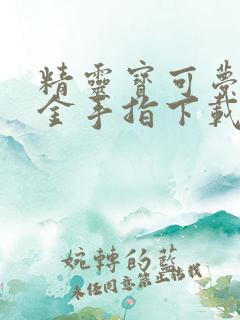 精靈寶可夢
金手指下載
婉轉的藍
未經同意禁止轉載